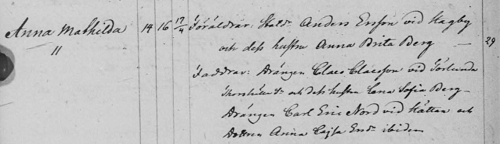 Anna Mathilda 14 16 17/4 Föräldrar: Statdr. Anders Ersson vid Hagby
11 och dess hustru Anna Brita Berg — 29
Faddrar: Drängen Claes Claesson vid
och dess hustru Lena Sofia Berg
Drängen Carl Eric Nord vid Hättan och
Dottren Anna Cajsa ibidem